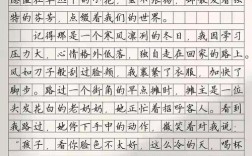 的芬芳，点缀着我们的世界。
记得那是一个寒风凛冽的冬日，我因学习
压力大，心情格外低落，独自走在回家的路上。
风如刀子般刮过脸颊，我裹紧了衣服，加快了
脚步。路过一个街角的早点摊时，摊主是一位
头发花白的老奶奶，她正忙着招呼客人。看到
我路过，她停下手中的动作，微笑着对我说：
“孩子，看你脸色不太好，这么冷的天，喝杯